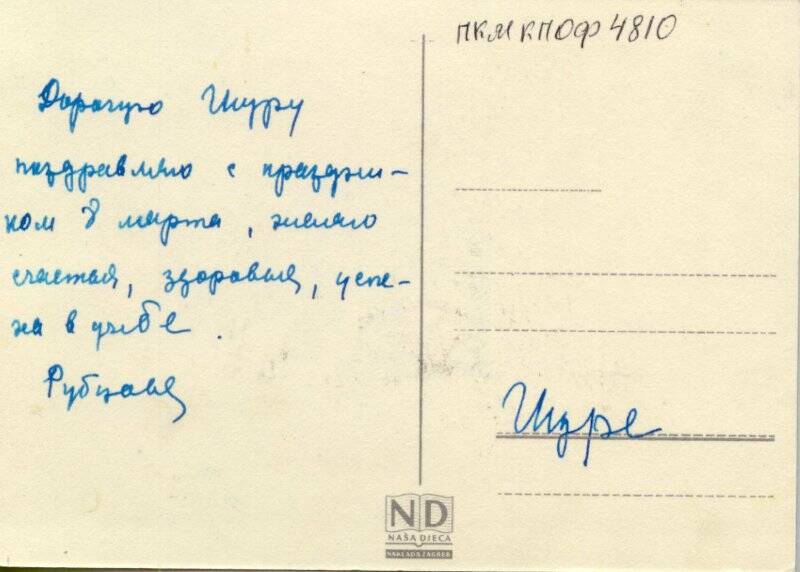 ПКМ КПОФ 4810
Дорогую Шуру
поздравляю с праздни-
ком 8 марта, желаю
счастья, здоровья, успе-
ха в учебе.
Рубцова
Шуре
ND
NAŠA DJECA
NAKLADA ZAGREB